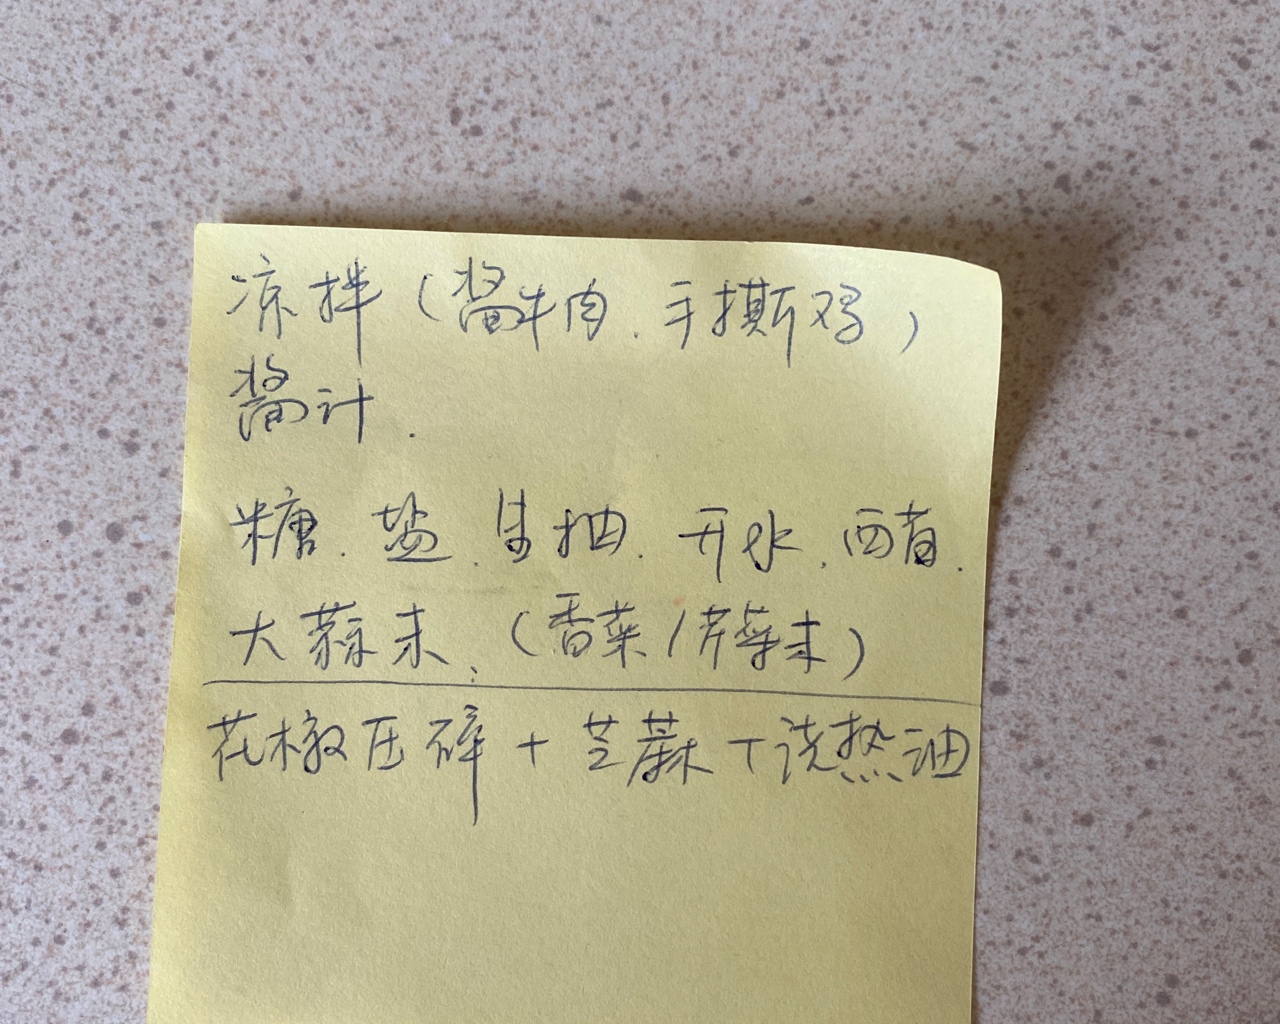 凉拌（酱牛肉、手撕鸡）
酱汁.
糖、盐、生抽、开水、西醋.
大蒜末、（香菜/芹菜末）
花椒压碎 + 芝麻 + 浇热油